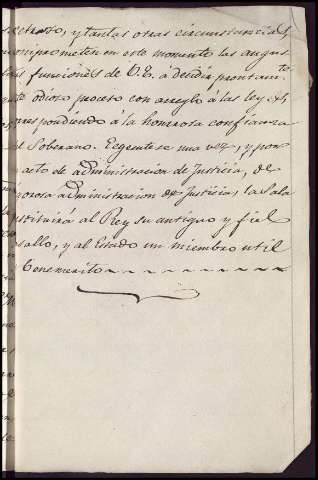 retraso, y tantas otras circunstancias,
comprometen en este momento las augus-
tas funciones de V.E. á decidir prontamte
este odioso proceso con arreglo á las leyes,
correspondiendo á la honerosa confianza
del Soberano. Egecutese una vez, y por
acto de administracion de Justicia, de
rigorosa administracion de Justicia, la Sala
restituirá al Rey su antiguo y fiel
vasallo, y al Estado un miembro util
benemerito